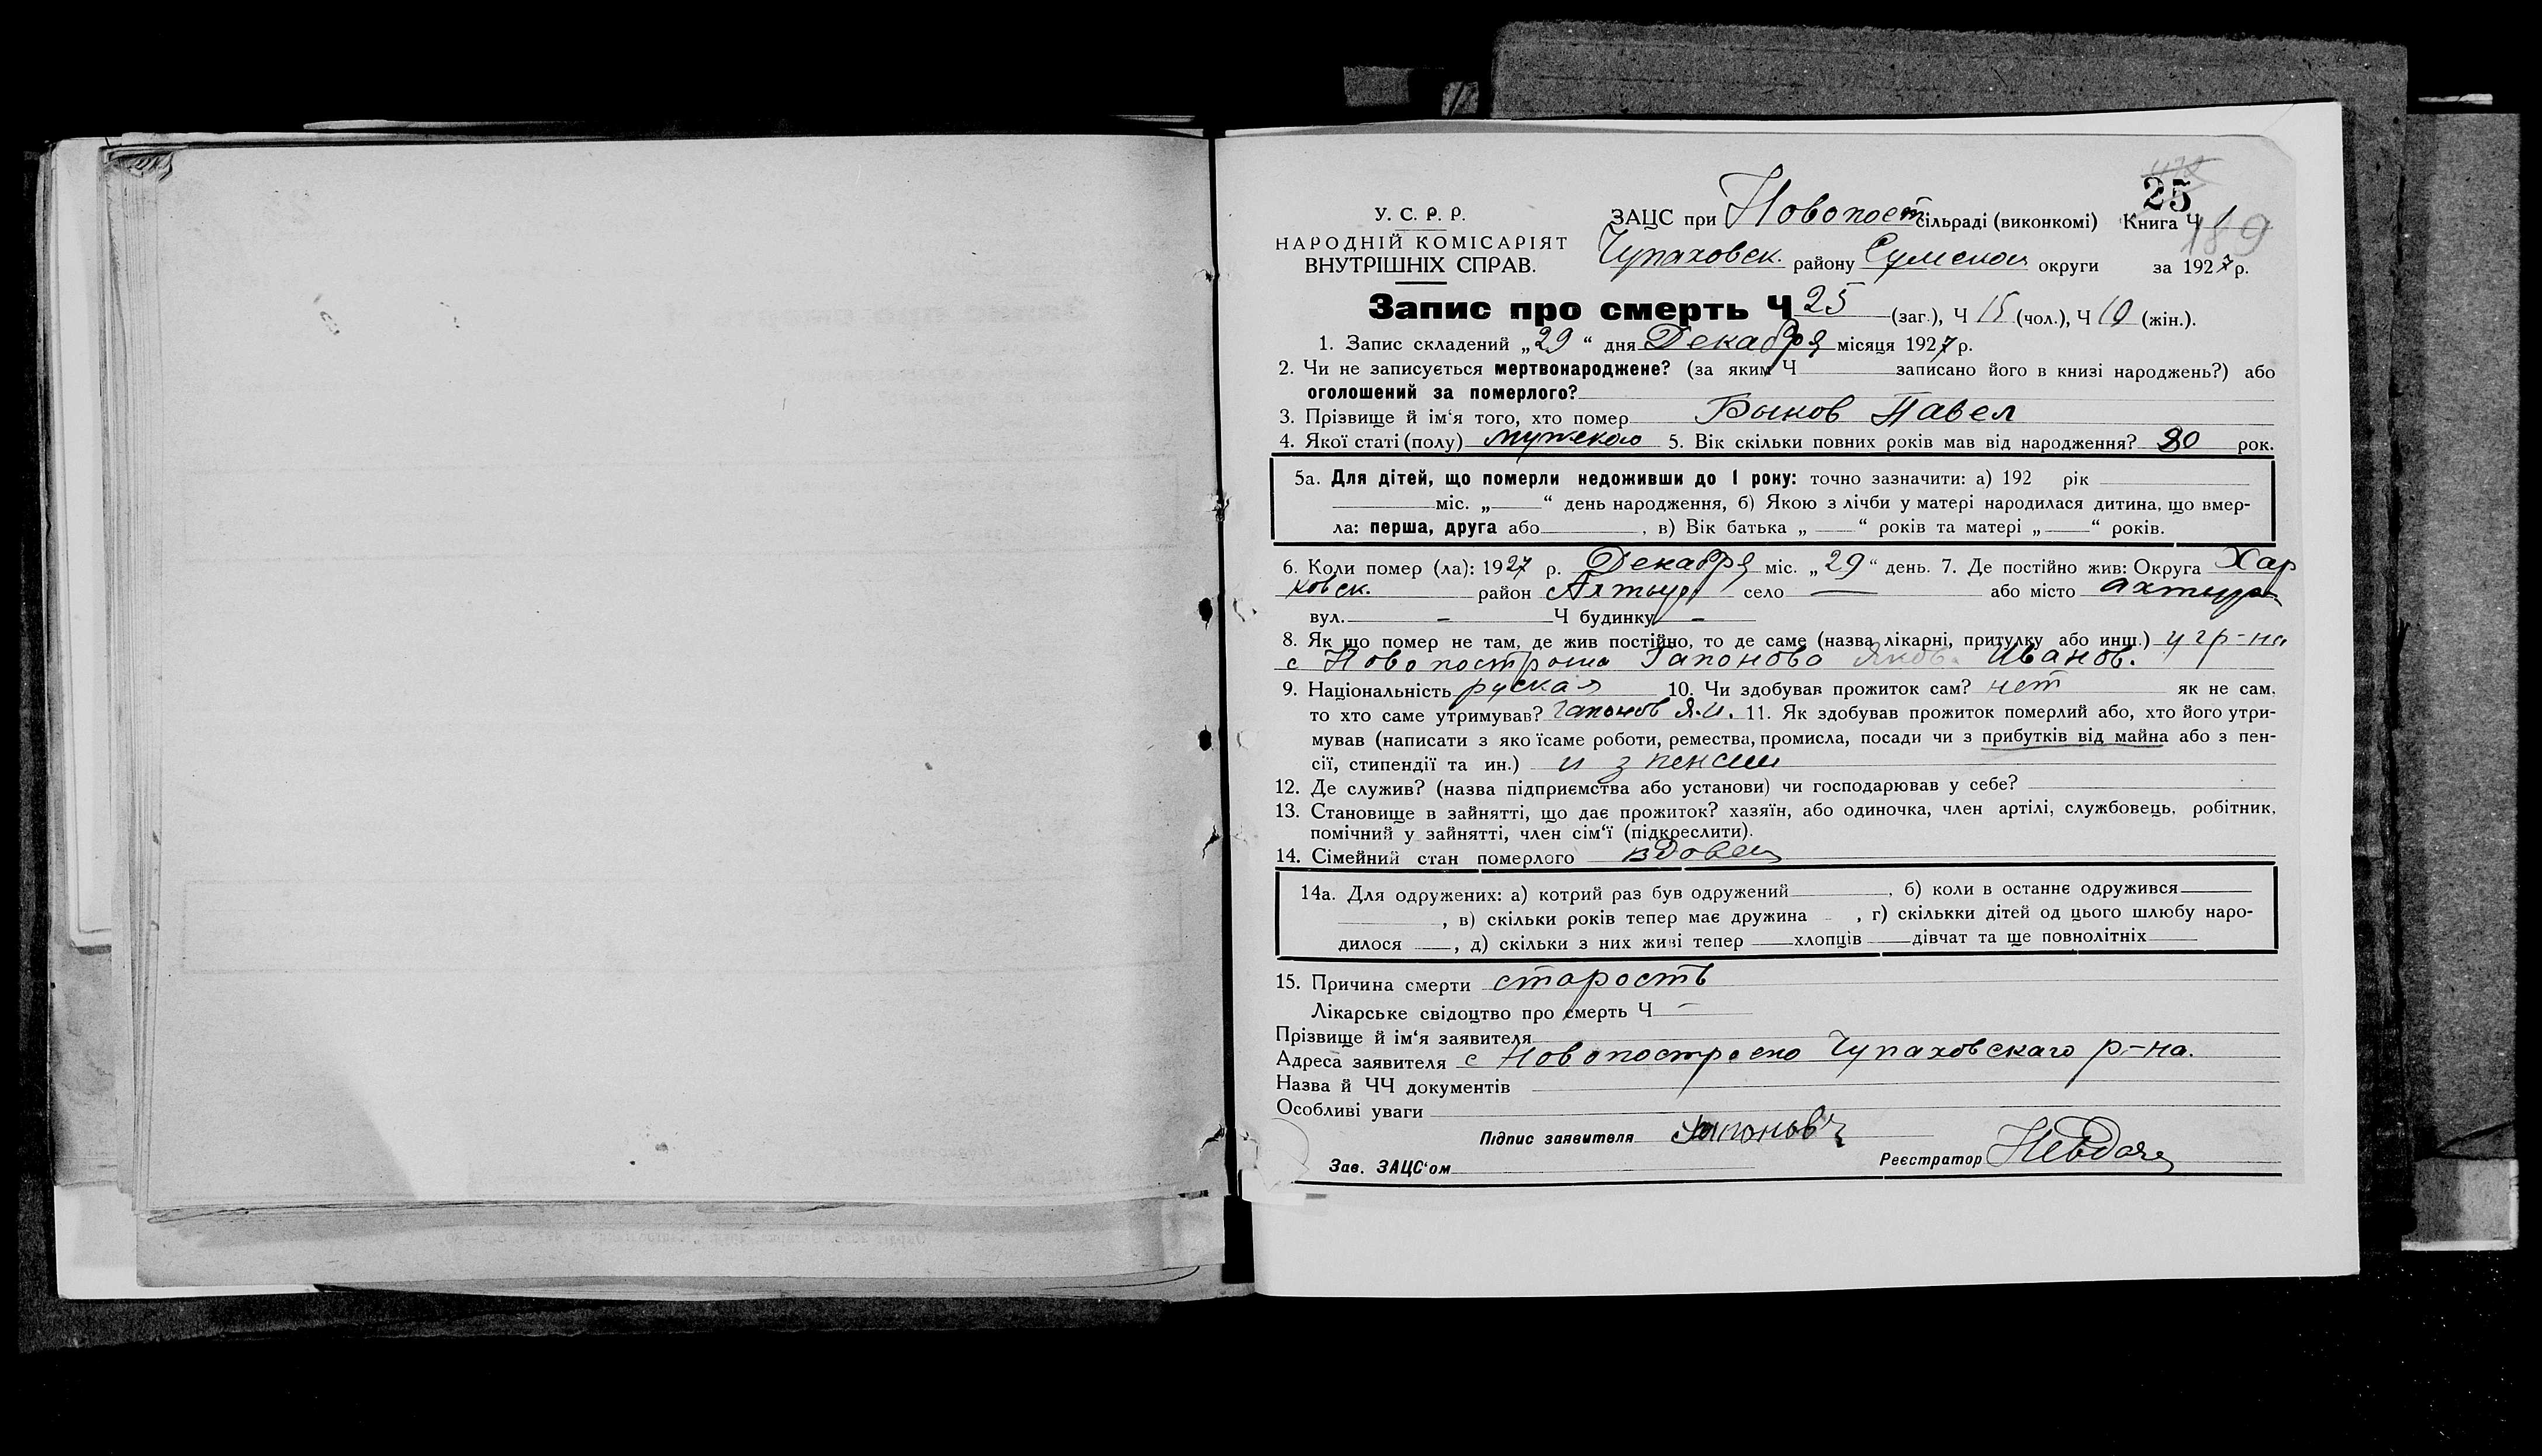 25
У. С. Р. Р.
НАРОДНІЙ КОМІСАРІЯТ
ВНУТРІШНІХ СПРАВ.
ЗАЦС при Новопост сільраді (виконкомі) Книга Ч 1
189
Чупаховск. району Сумской округи за 1927 р.
Запис про смерть Ч 25 (заг.), Ч 15 (чол.), Ч 10 (жін.).
1. Запис складений „29“ дня Декабря місяця 1927 р.
2. Чи не записується мертвонароджене? (за яким Ч записано його в книзі народжень?) або
оголошений за померлого?
3. Прізвище й ім‘я того, хто помер Быков Павел
4. Якої статі (полу) мужского 5. Вік скільки повних років мав від народження? 80 рок.
5а. Для дітей, що померли недоживши до 1 року: точно зазначити: а) 192 рік
міс. „ “ день народження, б) Якою з лічби у матері народилася дитина, що вмер-
ла: перша, друга або , в) Вік батька „ “ років та матері „ “ років.
6. Коли помер (ла): 1927 р. Декабря міс. „29“ день. 7. Де постійно жив: Округа Хар
ковск. район Ахтыр село — або місто Ахтыр
вул. - Ч будинку -
8. Як що помер не там, де жив постійно, то де саме (назва лікарні, притулку або инш.) у гр-на
с Новопостроена Гапонова Яков. Иванов.
9. Національність руская 10. Чи здобував прожиток сам? нет як не сам,
то хто саме утримував? Гапонов Я.И. 11. Як здобував прожиток померлий або, хто його утри-
мував (написати з яко їсаме роботи, ремества, промисла, посади чи з прибутків від майна або з пен-
сії, стипендії та ин.) из пенсии
12. Де служив? (назва підприємства або установи) чи господарював у себе?
13. Становище в зайнятті, що дає прожиток? хазяїн, або одиночка, член артілі, службовець, робітник,
помічний у зайнятті, член сім‘ї (підкреслити).
14. Сімейний стан померлого вдовец
14а. Для одружених: а) котрий раз був одружений , б) коли в останнє одружився
, в) скільки років тепер має дружина , г) скількки дітей од цього шлюбу наро-
дилося , д) скільки з них живі тепер хлопців дівчат та ще повнолітніх
15. Причина смерти старость
Лікарське свідоцтво про смерть Ч —
Прізвище й ім‘я заявителя
Адреса заявителя с Новопостроено Чупаховскаго р-на.
Назва й ЧЧ документів
Особливі уваги
Підпис заявителя Гапоновъ
Зав. ЗАЦС‘ом Реєстратор